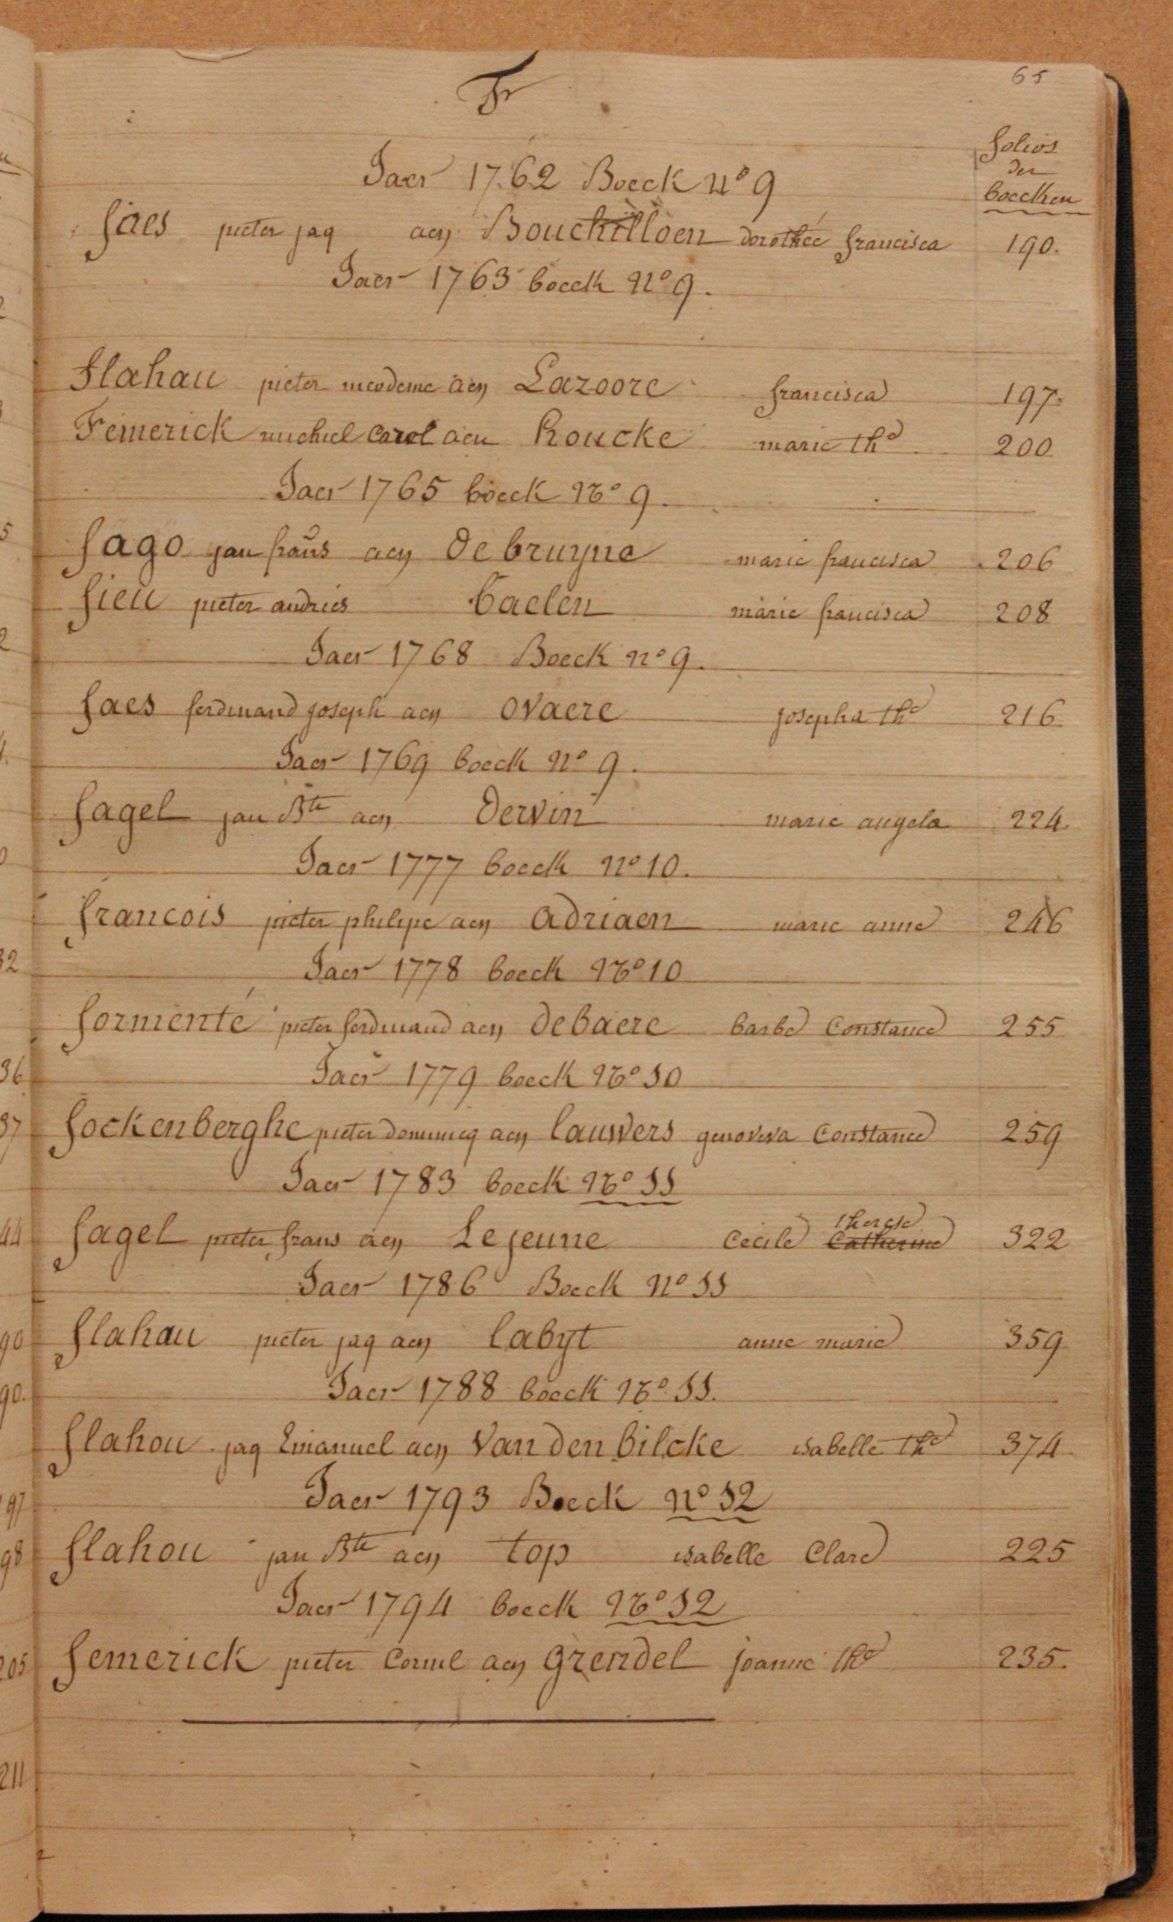 65
F
folios
der
boecken
Jaer 1762 Boeck No 9
faes pieter jaq aen Bouchilloen dorothée francisca 190.
Jaer 1763 boeck No 9.
flahau pieter nicodeme aen Lazoore francisca 197.
Femerick michiel Carel aen Roucke marie the 200
Jaer 1765 boeck No 9.
fago jan frans aen debruyne marie francisca 206
fieu pieter andries Caelen marie francisca 208
Jaer 1768 Boeck no 9.
faes ferdinand joseph aen ovaere josepha the 216
Jaer 1769 boeck No 9.
fagel jan Bte aen dervin marie angela 224.
Jaer 1777 boeck No 10.
francois pieter philipe aen adriaen marie anne 246
Jaer 1778 boeck No 10
formenté pieter ferdinand aen debaere barbe Constance 255
Jaer 1779 boeck No 10
fockenberghe pieter dominicq aen lauwers genoveva Constance 259
Jaer 1783 boeck No 11
fagel pieter frans aen Lejeune Cecile Catherine therese 322
Jaer 1786 Boeck No 11
flahau pieter jaq aen labyt anne marie 359
Jaer 1788 boeck No 11.
flahou jaq Emanuel aen Vandenbilcke isabelle the 374
Jaer 1793 Boeck No 12
flahou jan Bte aen top isabelle Clare 225
Jaer 1794 boeck No 12
femerick pieter Cornil aen grendel joanne the 235.